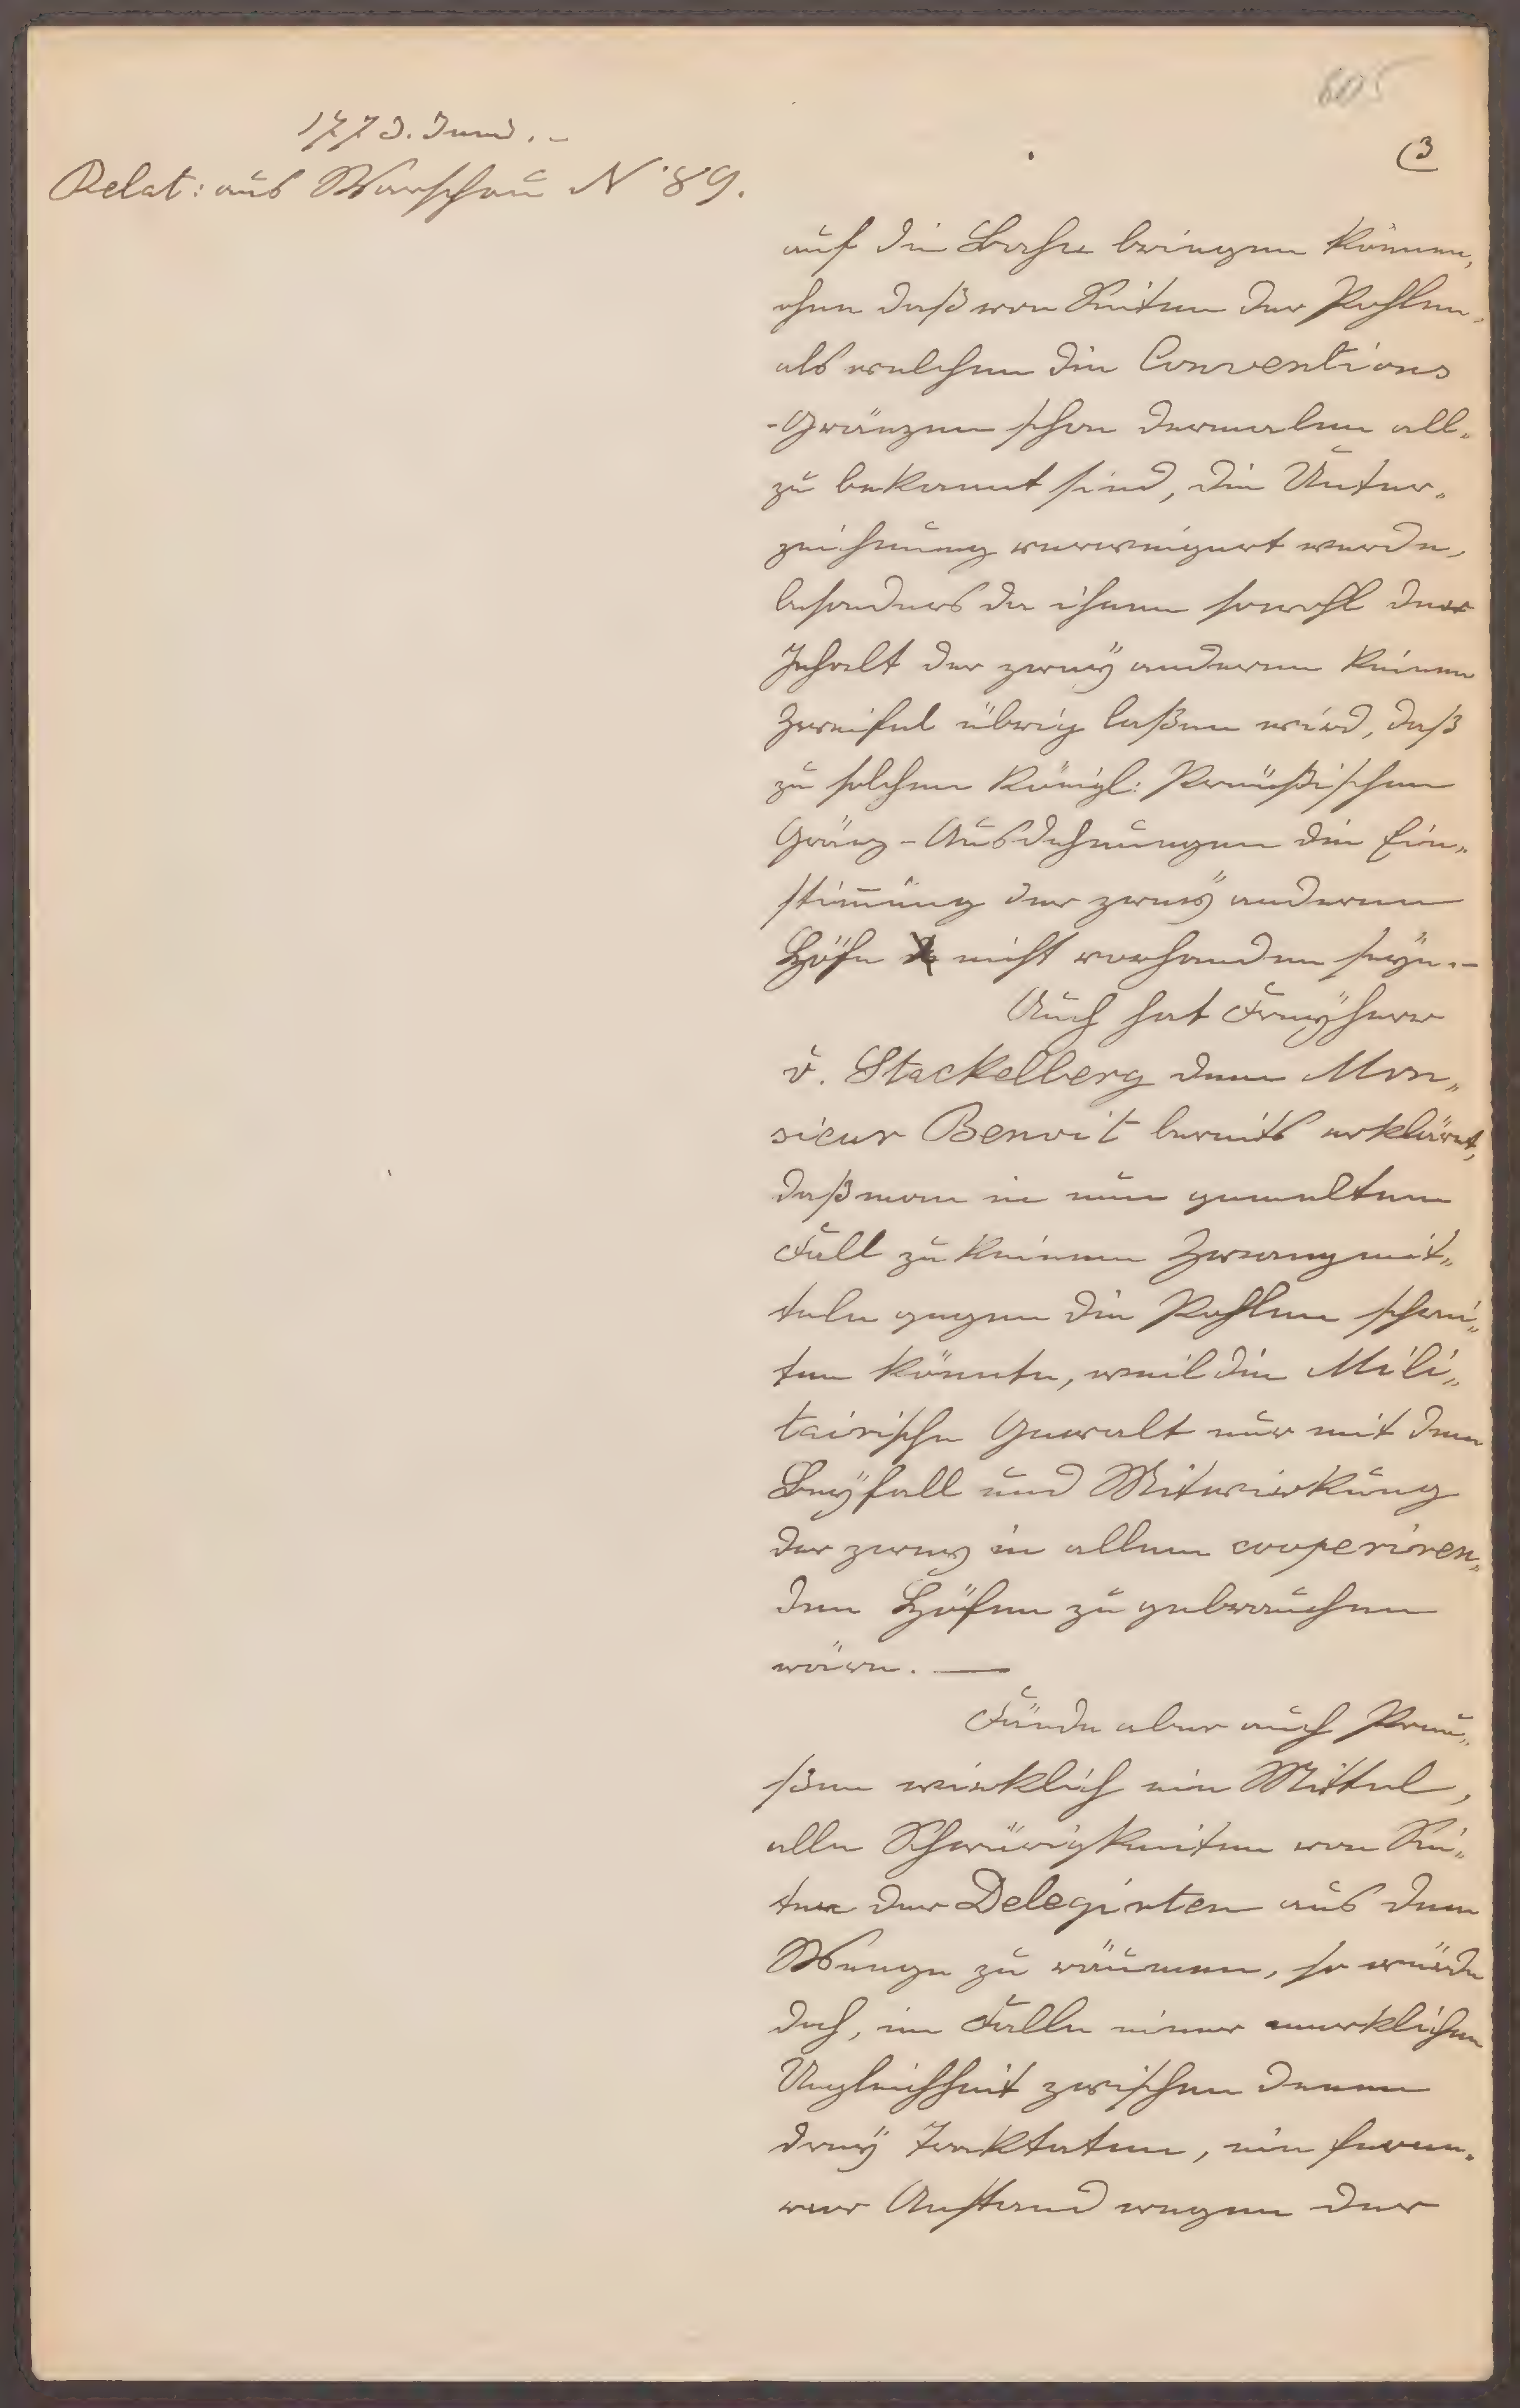 605
3
1773. Juni. -
Relat: aus Warschau N° 89.
auf die Bahn bringen können,
ohne daß von Seiten der Pohlen,
als welchen die Conventions
-Gränzen schon dermalen all-
zu bekannt sind, die Unter-
zeichnung verweigert werde,
besonders da ihnen sowohl der
Inhalt der zweÿ anderen keinen
Zweifel übrig laßen wird, daß
zu solchen Königl: Preüßischen
Gränz-Ausdehnungen die Ein-
stim̄ung der zweÿ anderen
Höfe nicht vorhanden seÿe.-
Auch hat Freÿherr
v. Stackelberg dem Mon-
sieur Benoit bereits erkläret,
daß man in nun gemeltem
Fall zu keinen Zwangmit-
teln gegen die Pohlen schrei-
ten könnte, weil die Mili-
tairische Gewalt nur mit dem
Beÿfall und Mitwirkung
der zweÿ in allem cooperiren-
den Höfen zu gebrauchen
wäre. —
Fände aber auch Preu-
ßen wirklich ein Mittel,
alle Schwürigkeiten von Sei-
ten der Delegirten aus dem
Weege zu räumen, so würde
doch, im Falle einer merklichen
Ungleichheit zwischen denen
dreÿ Traktaten, ein ferne-
rer Anstand wegen der